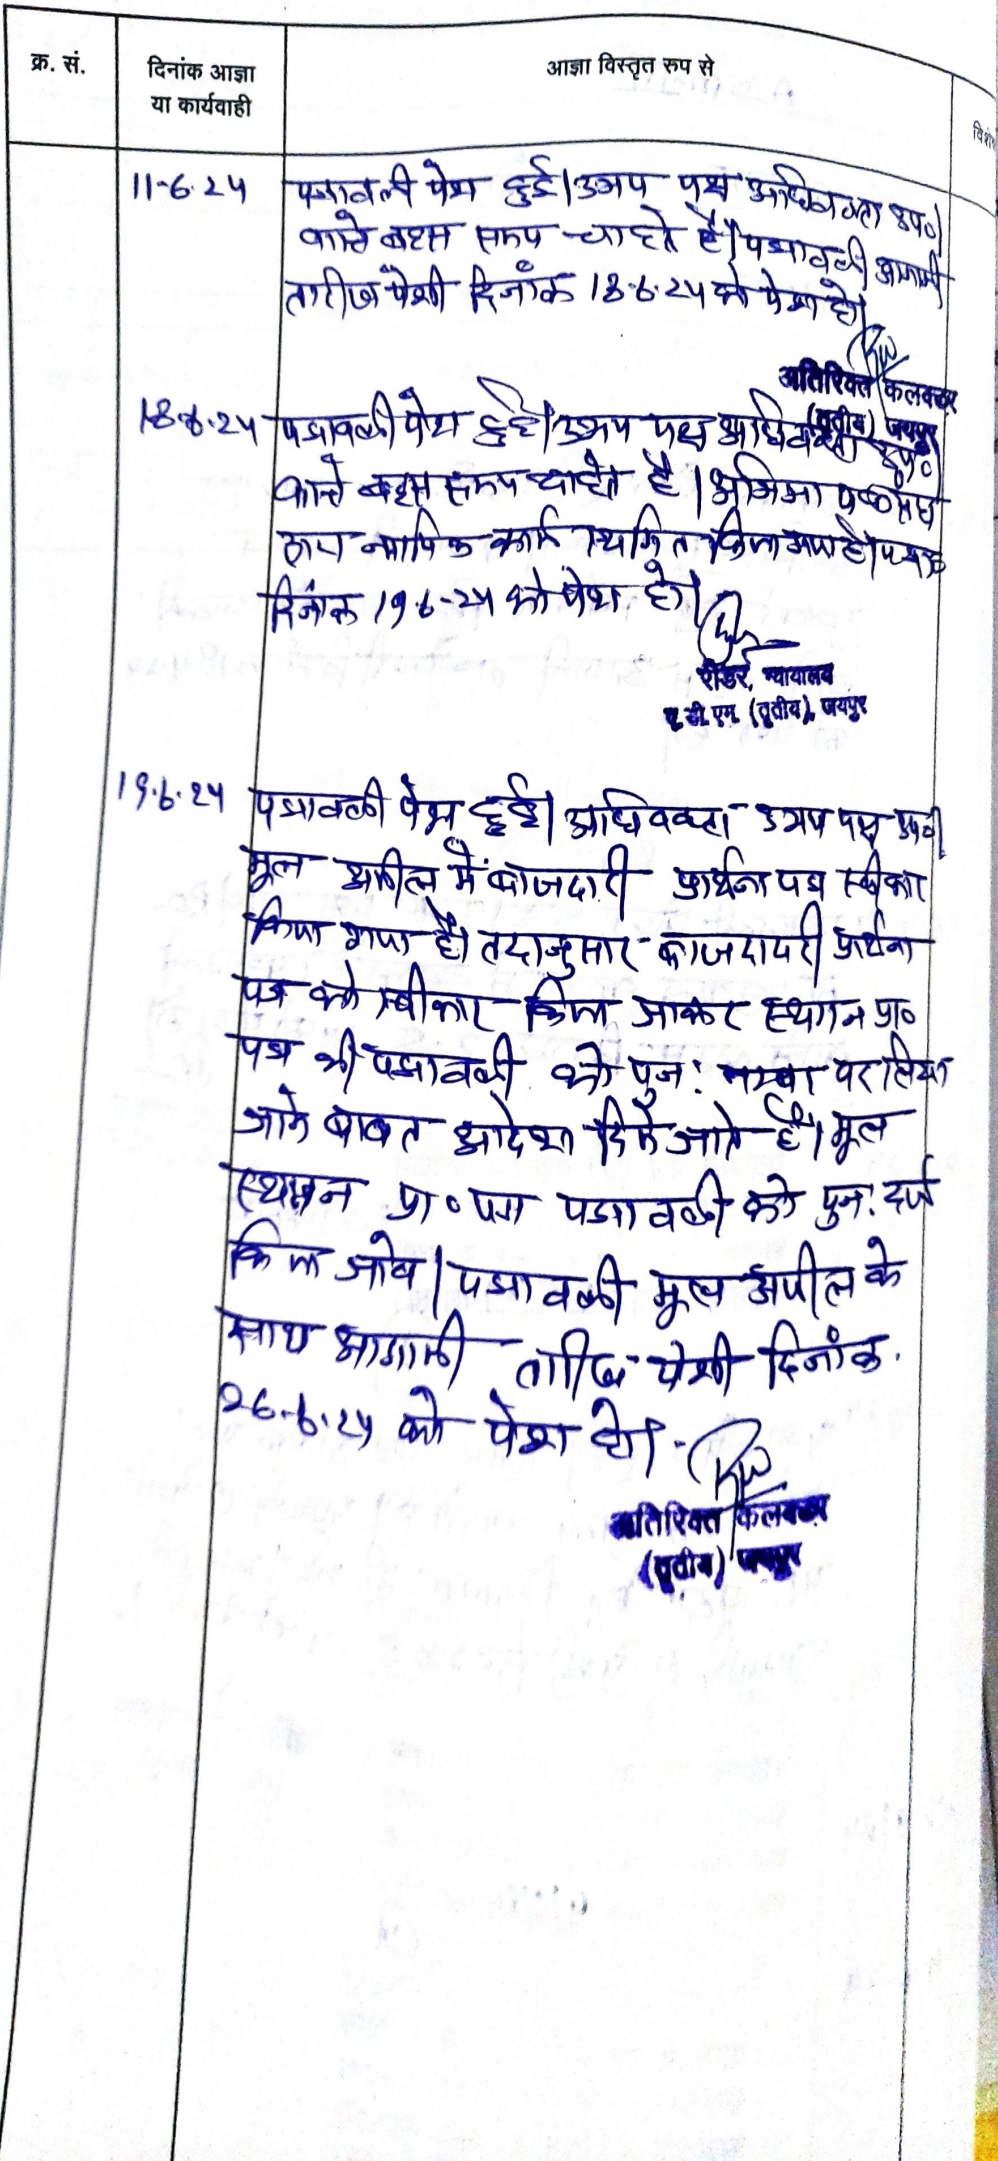 क्र. सं.
दिनांक आज्ञा
या कार्यवाही
आज्ञा विस्तृत रुप से
11-6-24 पत्रावली पेश हुई। उभय पक्ष अधिवक्ता उप०।
वास्ते बहस समय चाहते है। पत्रावली आगामी
तारीख पेशी दिनांक 18-6-24 को पेश हो।
अतिरिक्त कलक्टर
(तृतीय) जयपुर
18-6-24 पत्रावली पेश हुई। उभय पक्ष अधिवक्ता उप०।
वास्ते बहस समय चाहते है।
न्यायिक कार्य स्थगित किया गया है।
दिनांक 19-6-24 को पेश हो।
रीडर, न्यायालय
ए. डी. एम. (तृतीय), जयपुर
19-6-24 पत्रावली पेश हुई। अधिवक्ता उभय पक्ष उप०।
मूल अपील में प्रार्थना पत्र स्वीकार
किया गया है। तदानुसार प्रार्थना
पत्र को स्वीकार किया जाकर स्थगन प्रा०
पत्र की पत्रावली को पुन: नम्बर पर लिया
जाने बाबत आदेश दिये जाते है। मूल
स्थगन प्रा० पत्र पत्रावली को पुन: दर्ज
किया जावे। पत्रावली मूल अपील के
साथ आगामी तारीख पेशी दिनांक
26-6-24 को पेश हो।
अतिरिक्त कलक्टर
(तृतीय) जयपुर